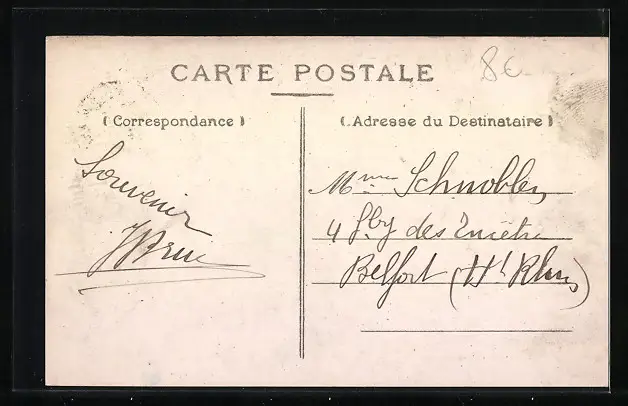 CARTE POSTALE
8€
( Correspondance )
( Adresse du Destinataire )
Souvenir
Mme Schnobler
4 Fbg des
Belfort (Ht Rhin)